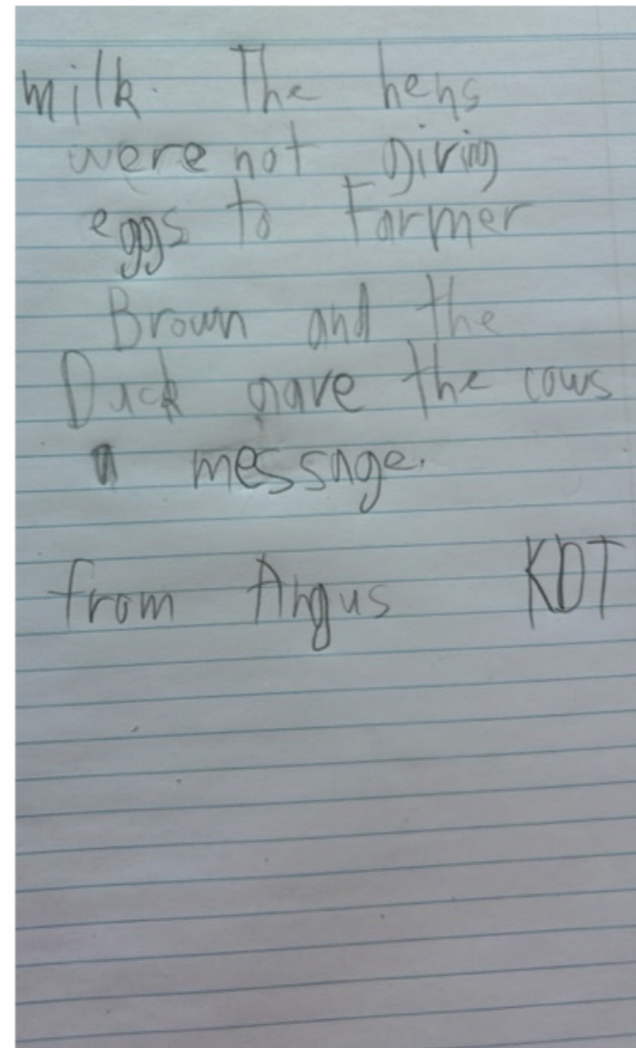 milk. The hens
were not giving
eggs to Farmer
Brown and the
Duck gave the cows
a message.
from Angus KDT